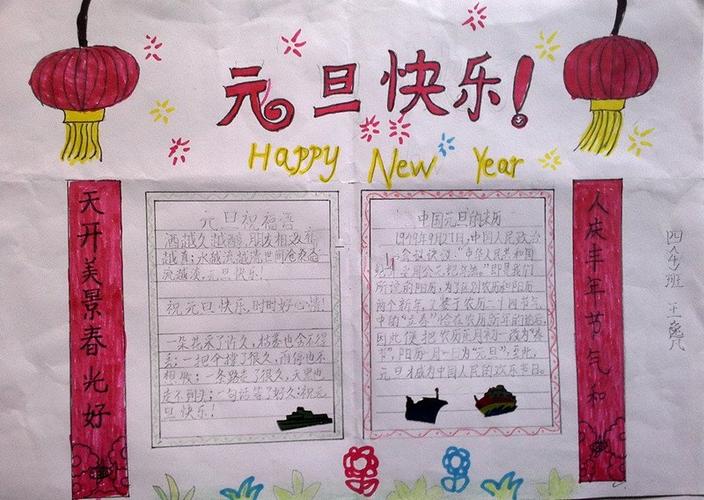 元旦快乐!
Happy New Year
天开美景春光好
元旦祝福语
酒越久越醇,朋友相交越
越真;水越流越清,世间沧桑越
流越淡。元旦快乐!
祝元旦快乐,时时好心情!
一朵花采了许久,枯萎也舍不得
丢;一把伞撑了很久,雨停也不
想收;一条路走了很久,天黑也
走不到头;一句话等了好久:祝元
旦快乐!
中国元旦的来历
1949年9月27日,中国人民政治
会议决议:"中华人民共和国
采用公元纪年法,"即是我们
所说的阳历,为了区别农历和阳历
两个新年,又鉴于农历二十四节气
中的"立春"恰在农历新年的前后,
因此便把农历正月初一改为"春
节",阳历一月一日为"元旦",至此,
元旦才成为中国人民的欢乐节日。
人庆丰年节气和
四 班 王